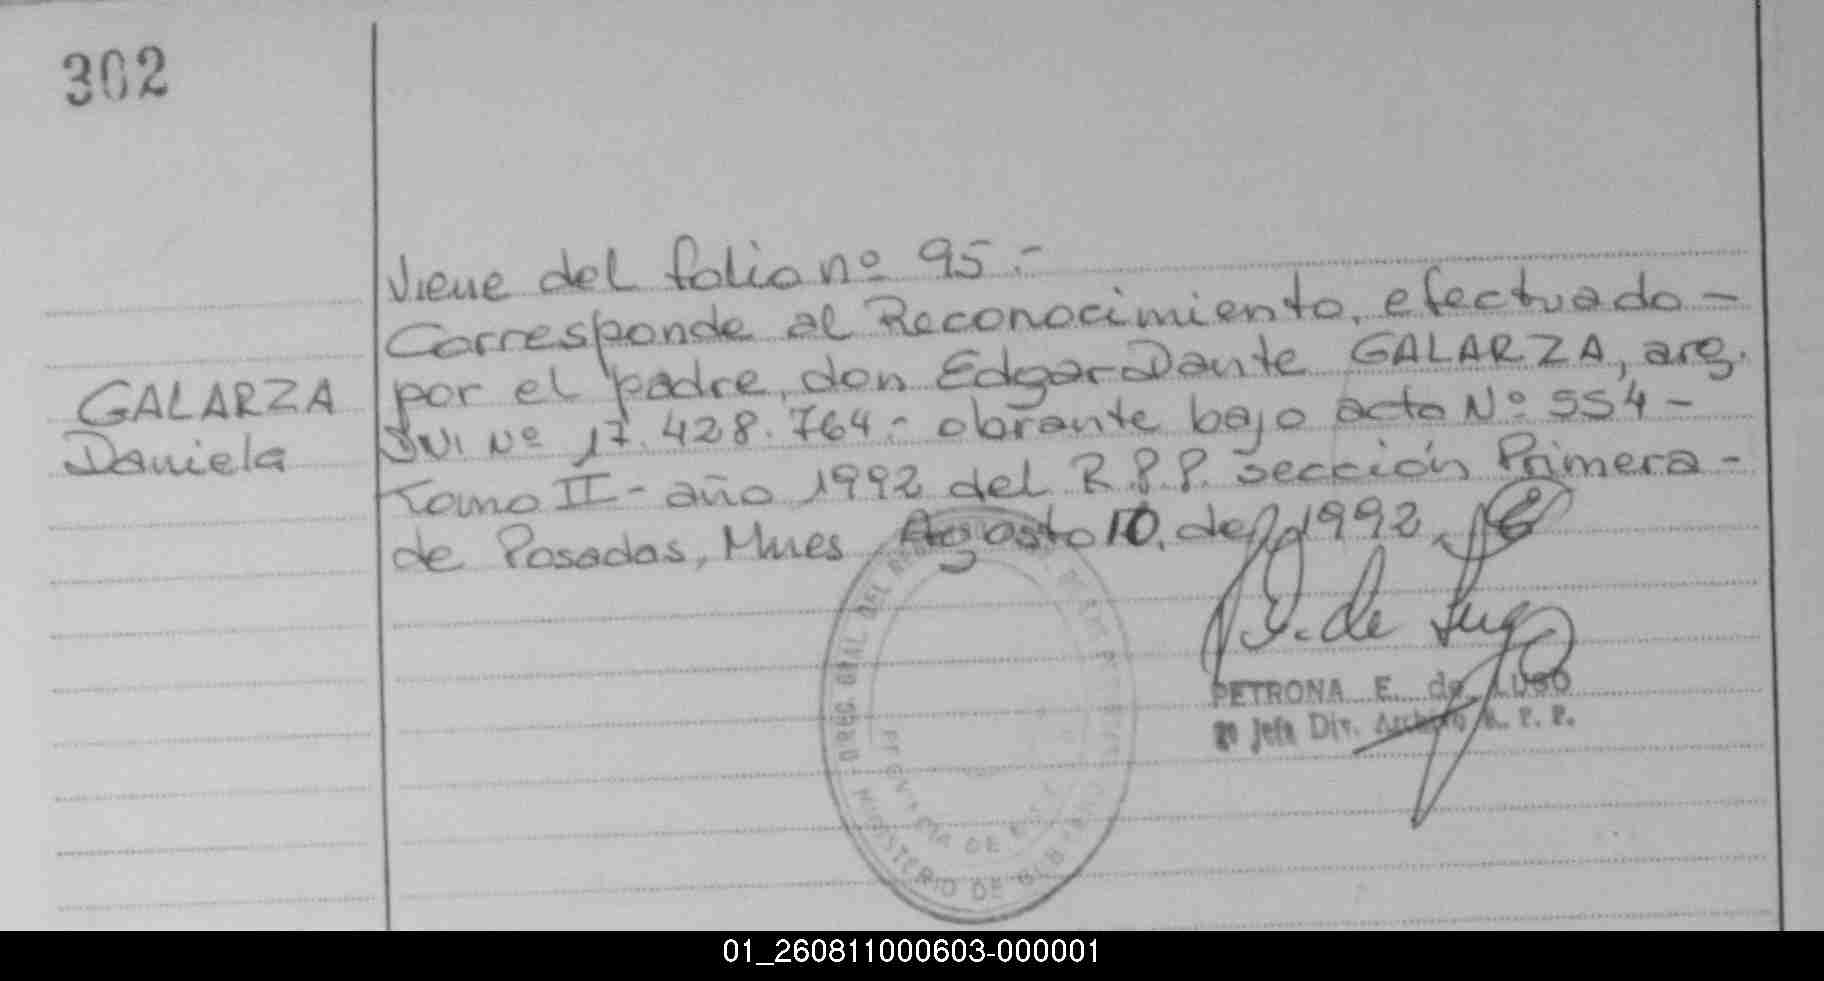 302
Viene del folio nº 95.-
Corresponde al Reconocimiento, efectuado -
GALARZA por el padre, don Edgar Dante GALARZA, arg.
Daniela DNI Nº 17.428.764.- obrante bajo acta Nº 554 -
Tomo II - año 1992 del R.P.P. sección Primera -
de Posadas, Mnes Agosto 10. de 1992
DIREC. GRAL DEL
MINISTERIO DE GOBIERNO
PROVINCIA DE
P. de Lugo
PETRONA E. de LUGO
2º Jefa Div. Archivo R. P. P.
01_260811000603-000001